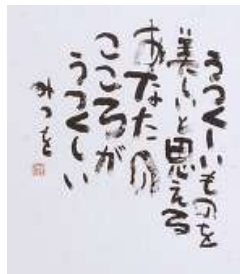 うつくしいものを
美しいと思える
あなたの
こころが
うつくしい
みつを